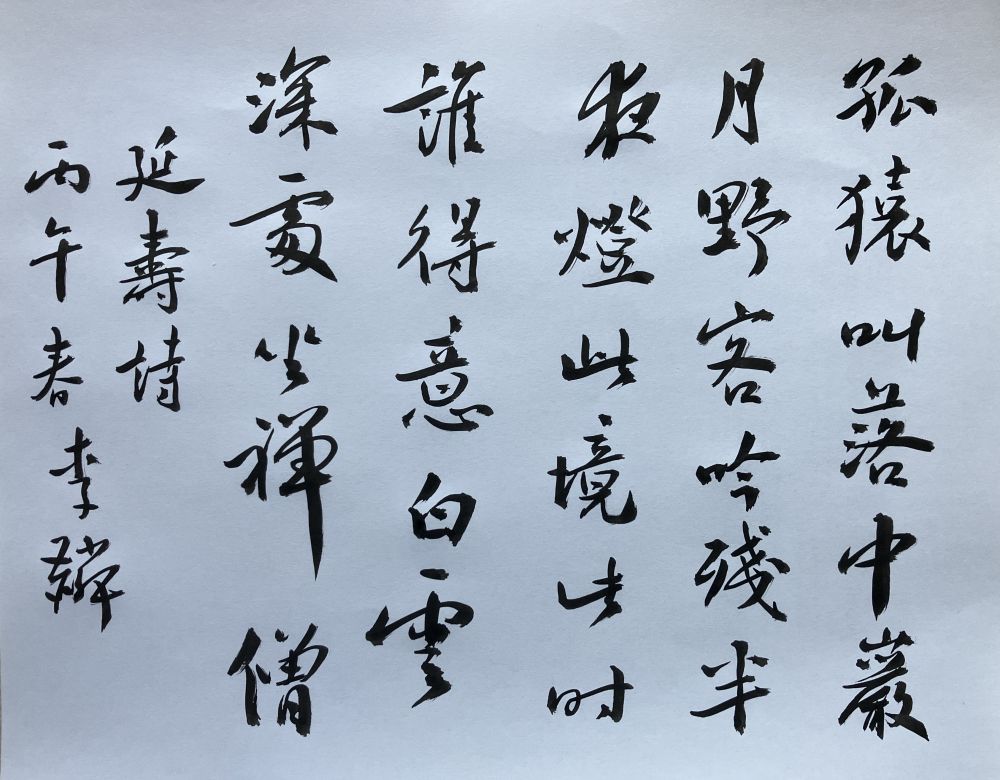 孤猿叫落中巖
月野客吟殘半
夜燈此境此时
誰得意白雲
深處坐禪僧
延壽詩
丙午春
李